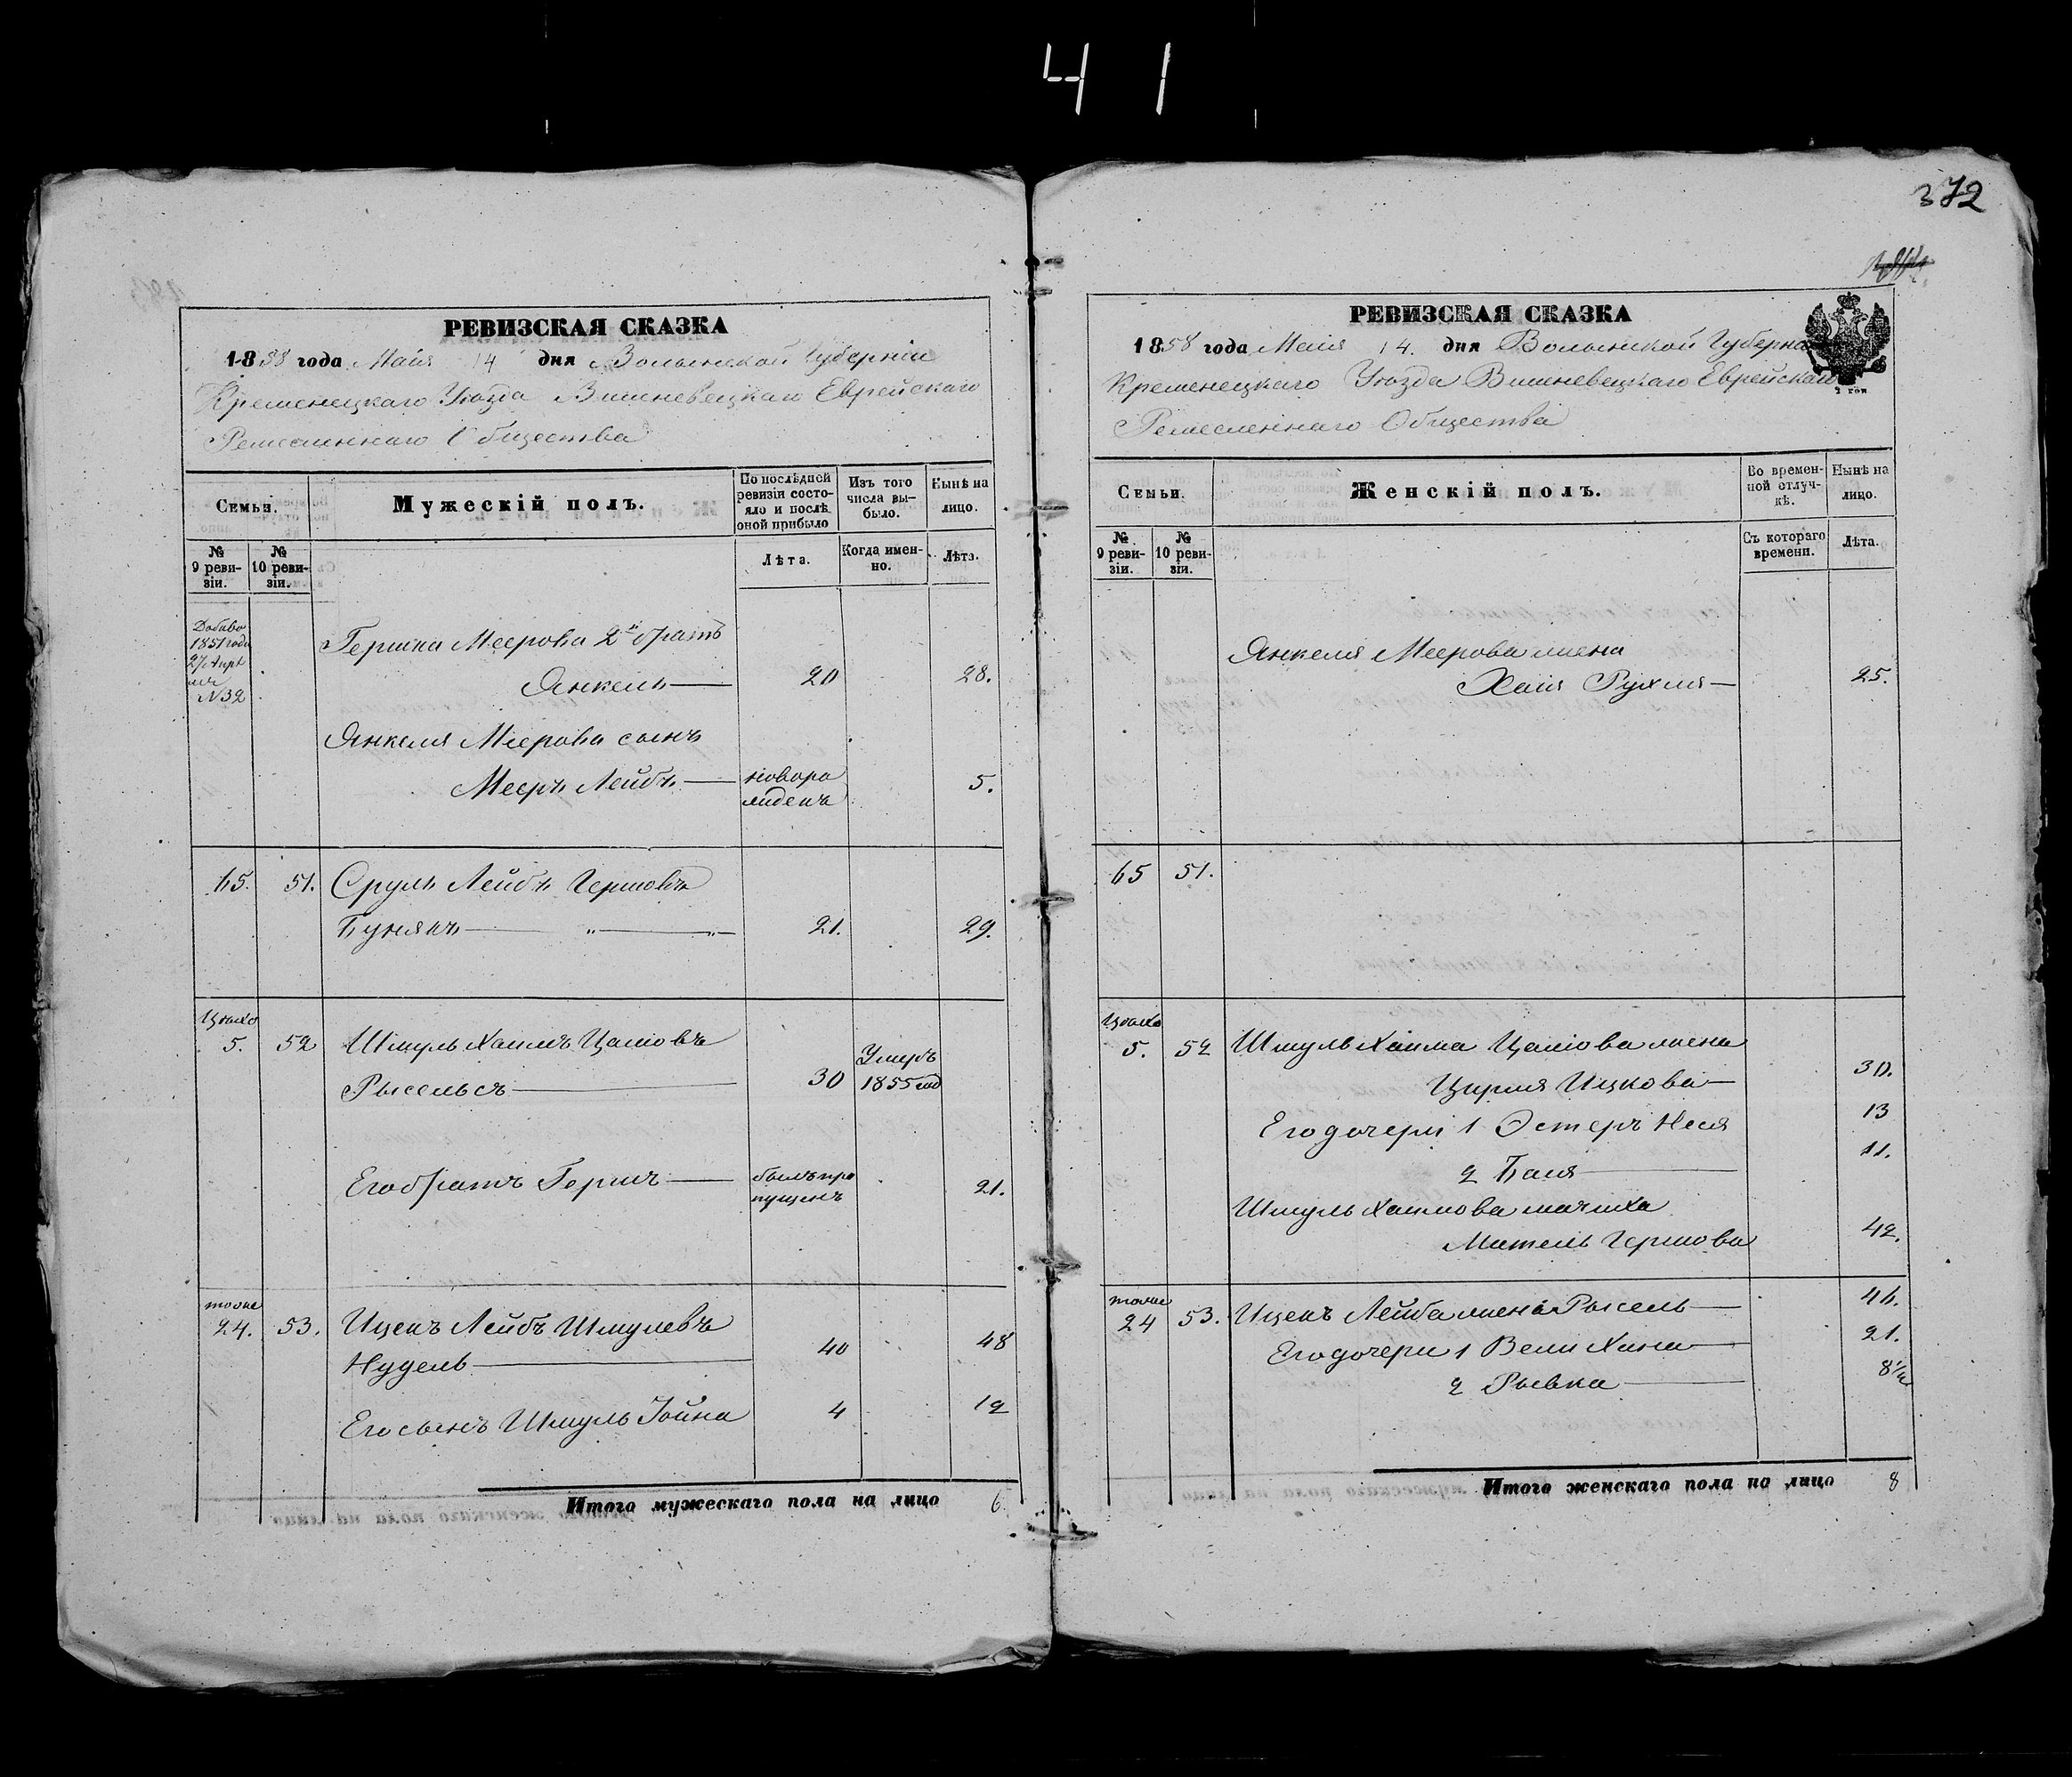 41
372
РЕВИЗСКАЯ СКАЗКА
1858 года Майя 14 дня Волынской Губернии
Кременецкаго Уѣзда Вишневецкаго Еврейскаго
Ремесленнаго Общества
Семьи.
Мужескій полъ.
По послѣдней ревизіи состо-
яло и послѣ оной прибыло
Изъ того числа вы-
было.
Нынѣ на лицо.
№ 9 реви-
зіи.
№ 10 реви-
зіи.
Лѣта.
Когда имен-
но.
Лѣта.
Добаво
1851 года
27 Апрѣ
ля
№32
Гершка Меерова 2й братъ
Янкель — 20 28.
Янкеля Меерова сынъ
Мееръ Лейбъ — новоро
жденъ 5.
65. 51. Сруль Лейбъ Гершовъ
Бунякъ — 21. 29.
5. 52 Шмуль Хаимъ Цаліовъ
Рысельсъ — 30 Умеръ
1855 год
Его братъ Гершъ — былъ про
пущенъ 21.
тоже
24. 53. Ицекъ Лейбъ Шмулевъ
Нудель — 40 48
Его сынъ Шмуль Іойна 4 12
Итого мужескаго пола на лицо 6.
РЕВИЗСКАЯ СКАЗКА
1858 года Майя 14. дня Волынской Губерніи
Кременецкаго Уѣзда Вишневецкаго Еврейскаго
Ремесленнаго Общества
Семьи.
Женскій полъ.
Во времен-
ной отлуч-
кѣ.
Нынѣ на лицо.
№ 9 реви-
зіи.
№ 10 реви-
зіи.
Съ котораго времени.
Лѣта.
Янкеля Меерова жена
Хаия Рухля — 25.
65 51.
5. 52 Шмуль Хаима Цаліова жена
Цирля Ицкова — 30.
Его дочери 1 Эстеръ Неся 13
2 Бася — 11.
Шмуль Хаимова мачиха
Матель Гершова 42.
тоже
24 53. Ицекъ Лейба жена Рысель — 46.
Его дочери 1 Вели Хана — 21.
2 Рывка — 8½
Итого женскаго пола на лицо 8